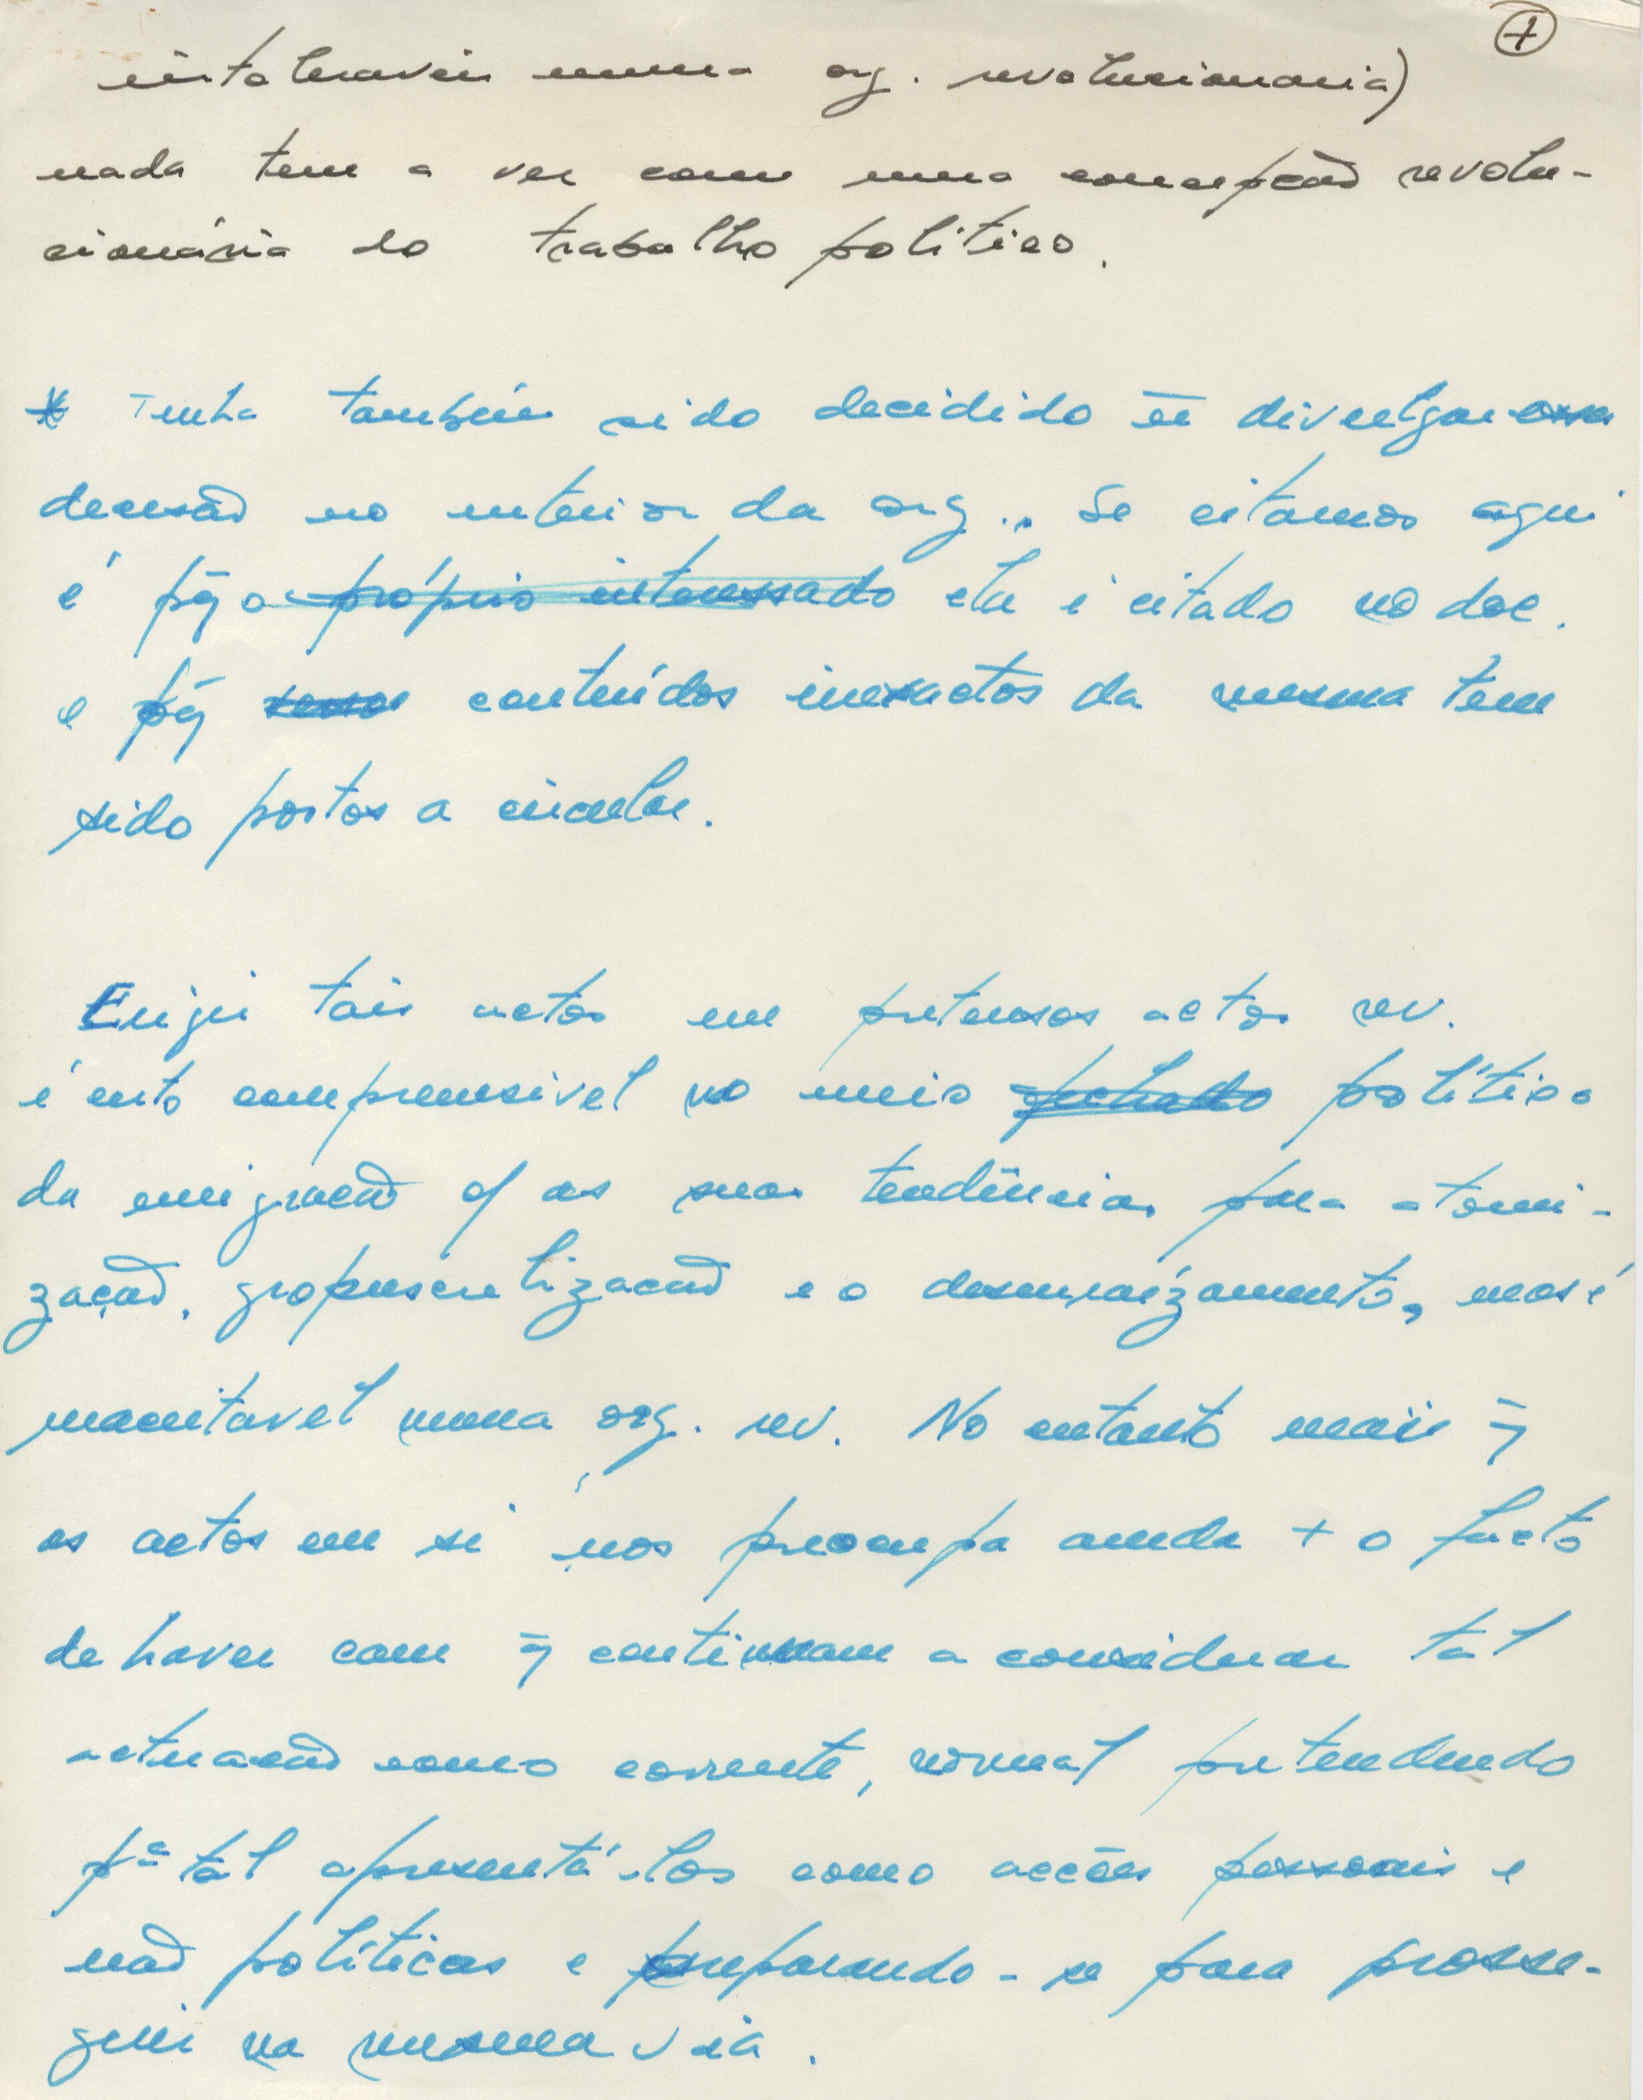 +
intoleraveis numa org. revolucionaria)
nada tem a ver com uma concepção revolu-
cionária do trabalho politico.
* Tinha também sido decidido ñ divulgar essa
decisão no interior da org.. Se citamos aqui
é pq o próprio interessado ela é citado no doc.
e pq conteúdos inexactos da mesma tem
sido postos a circular.
Erigir tais actos em pretensos actos rev.
é certo compreensivel no meio fechado político
da emigração c/ as suas tendências para atomi-
zação, grupuscutização e o desenraízamento, mas é
inaceitavel numa org. rev. No entanto mais q̄
os actos em si nos preocupa ainda + o facto
de haver cam q̄ continuam a considerar tal
actuação como corrente, normal pretendendo
pª tal apresentá-los como acções pessoais e
não políticas e preparando-se para prosse-
guir na mesma via.